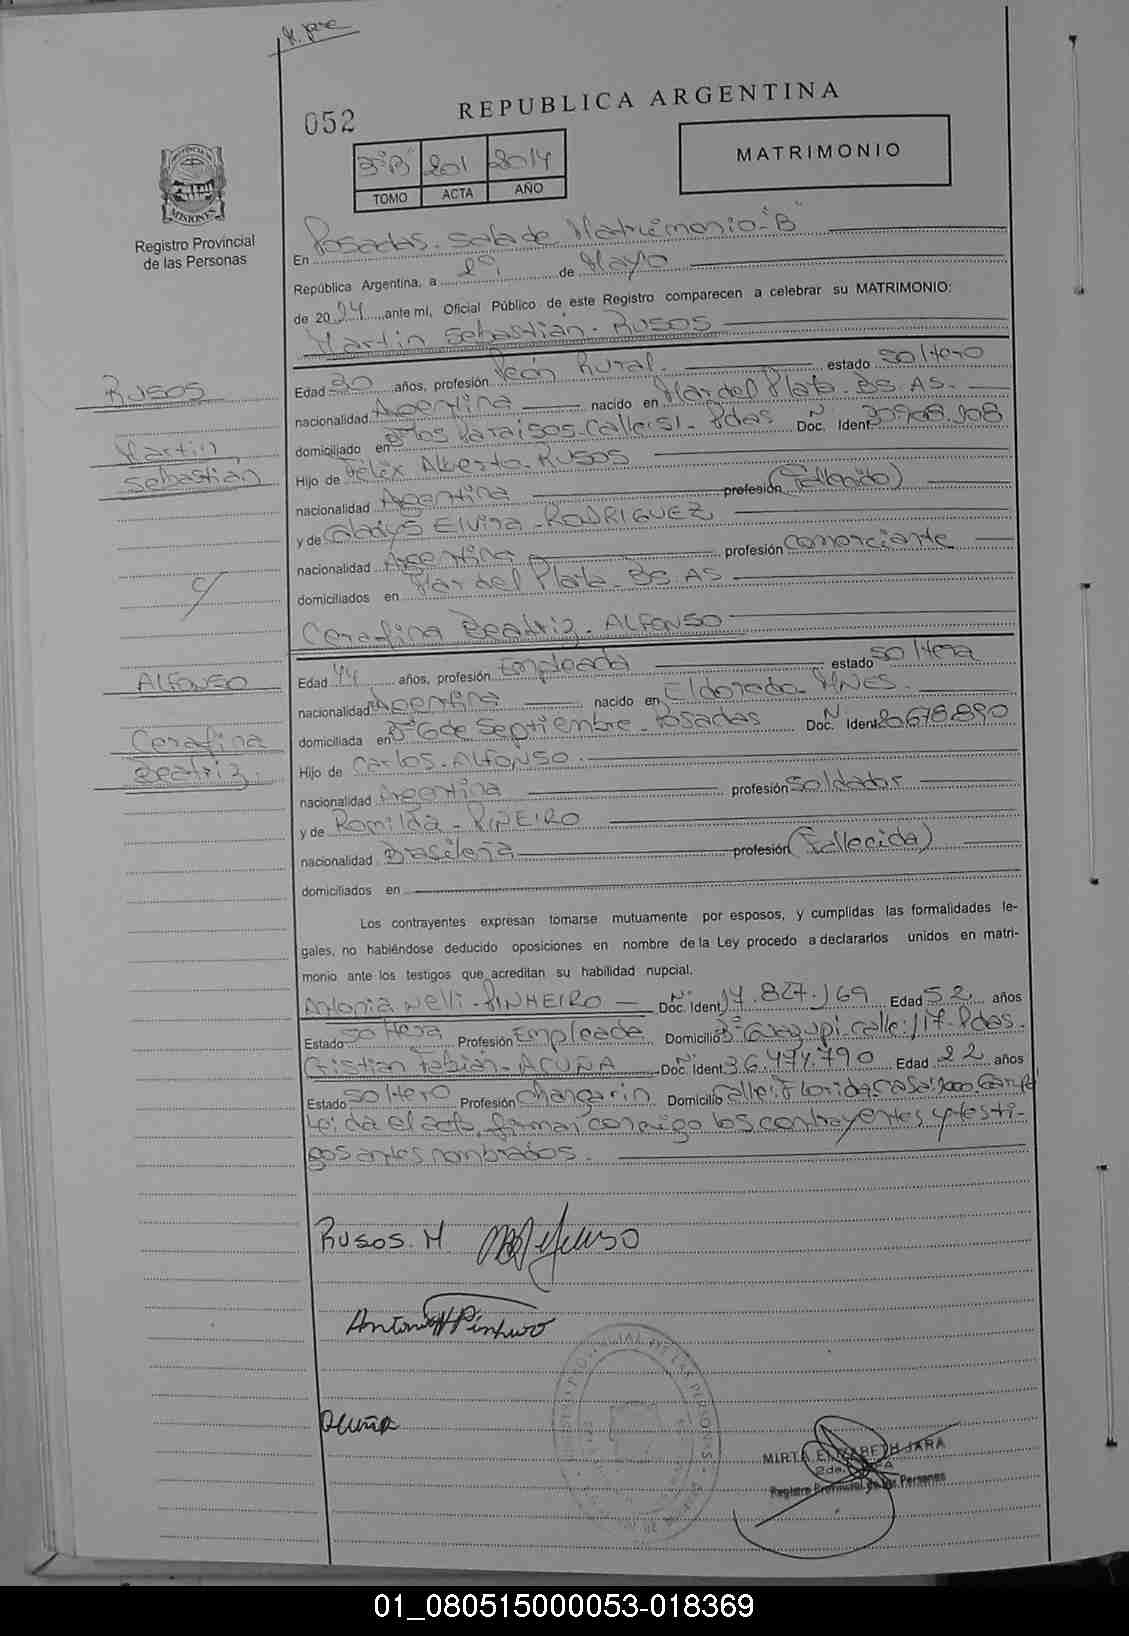 052
REPUBLICA ARGENTINA
3º"B" 201 2014
TOMO ACTA AÑO
MATRIMONIO
PROVINCIA MISIONES
Registro Provincial
de las Personas
En Posadas. Sala de Matrimonio "B"
República Argentina, a de Mayo
de 2014 ante mí, Oficial Público de este Registro comparecen a celebrar su MATRIMONIO:
Martín Sebastián. RUSOS
RUSOS
Martín
Sebastián
Edad 30 años, profesión Peón Rural. estado Soltero
nacionalidad Argentina nacido en Mar del Plata. BS. AS.
domiciliado en Bº Los Paraisos. Calle: 51. Pdas Doc. Nº Ident. 30.908.908
Hijo de Félix Alberto. RUSOS
nacionalidad Argentina profesión (Fallecido)
y de Gladys Elvira. RODRIGUEZ
nacionalidad Argentina profesión Comerciante
domiciliados en Mar del Plata. BS. AS
Cerafina Beatriz. ALFONSO
ALFONSO
Cerafina
Beatriz.
Edad 44 años, profesión Empleada estado Soltera
nacionalidad Argentina nacido en Eldorado. MNES.
domiciliada en Bº 6 de Septiembre. Posadas Doc. Nº Ident. 20.678.890
Hijo de Carlos. ALFONSO.
nacionalidad Argentina profesión Soldador
y de Romilda. PIÑEIRO
nacionalidad Brasileña profesión (Fallecida)
domiciliados en
Los contrayentes expresan tomarse mutuamente por esposos, y cumplidas las formalidades le-
gales, no habiéndose deducido oposiciones en nombre de la Ley procedo a declararlos unidos en matri-
monio ante los testigos que acreditan su habilidad nupcial.
Antonia Nelli. PINHEIRO Doc. Nº Ident. 17.827.169 Edad 52 años
Estado Soltera Profesión Empleada Domicilio Bº Guazupi. calle: 117. Pdas.
Cristian Fabián. ACUÑA Doc. Nº Ident. 36.474.790 Edad 22 años
Estado Soltero Profesión Changarin Domicilio Calle: Florida, Casa: 1000. Garupá
Leida el acta, firman conmigo los contrayentes y testi-
gos antes nombrados.
RUSOS. M
Antonia N Pinheiro
Acuña
MIRTA ELIZABETH JARA
Registro Provincial de las Personas
01_080515000053-018369